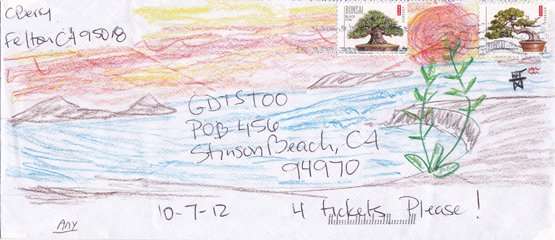 CBerry
Felton CA 95018
BONSAI
GDTSTOO
POB 456
Stinson Beach, CA
94970
10-7-12 4 tickets, Please!
Any